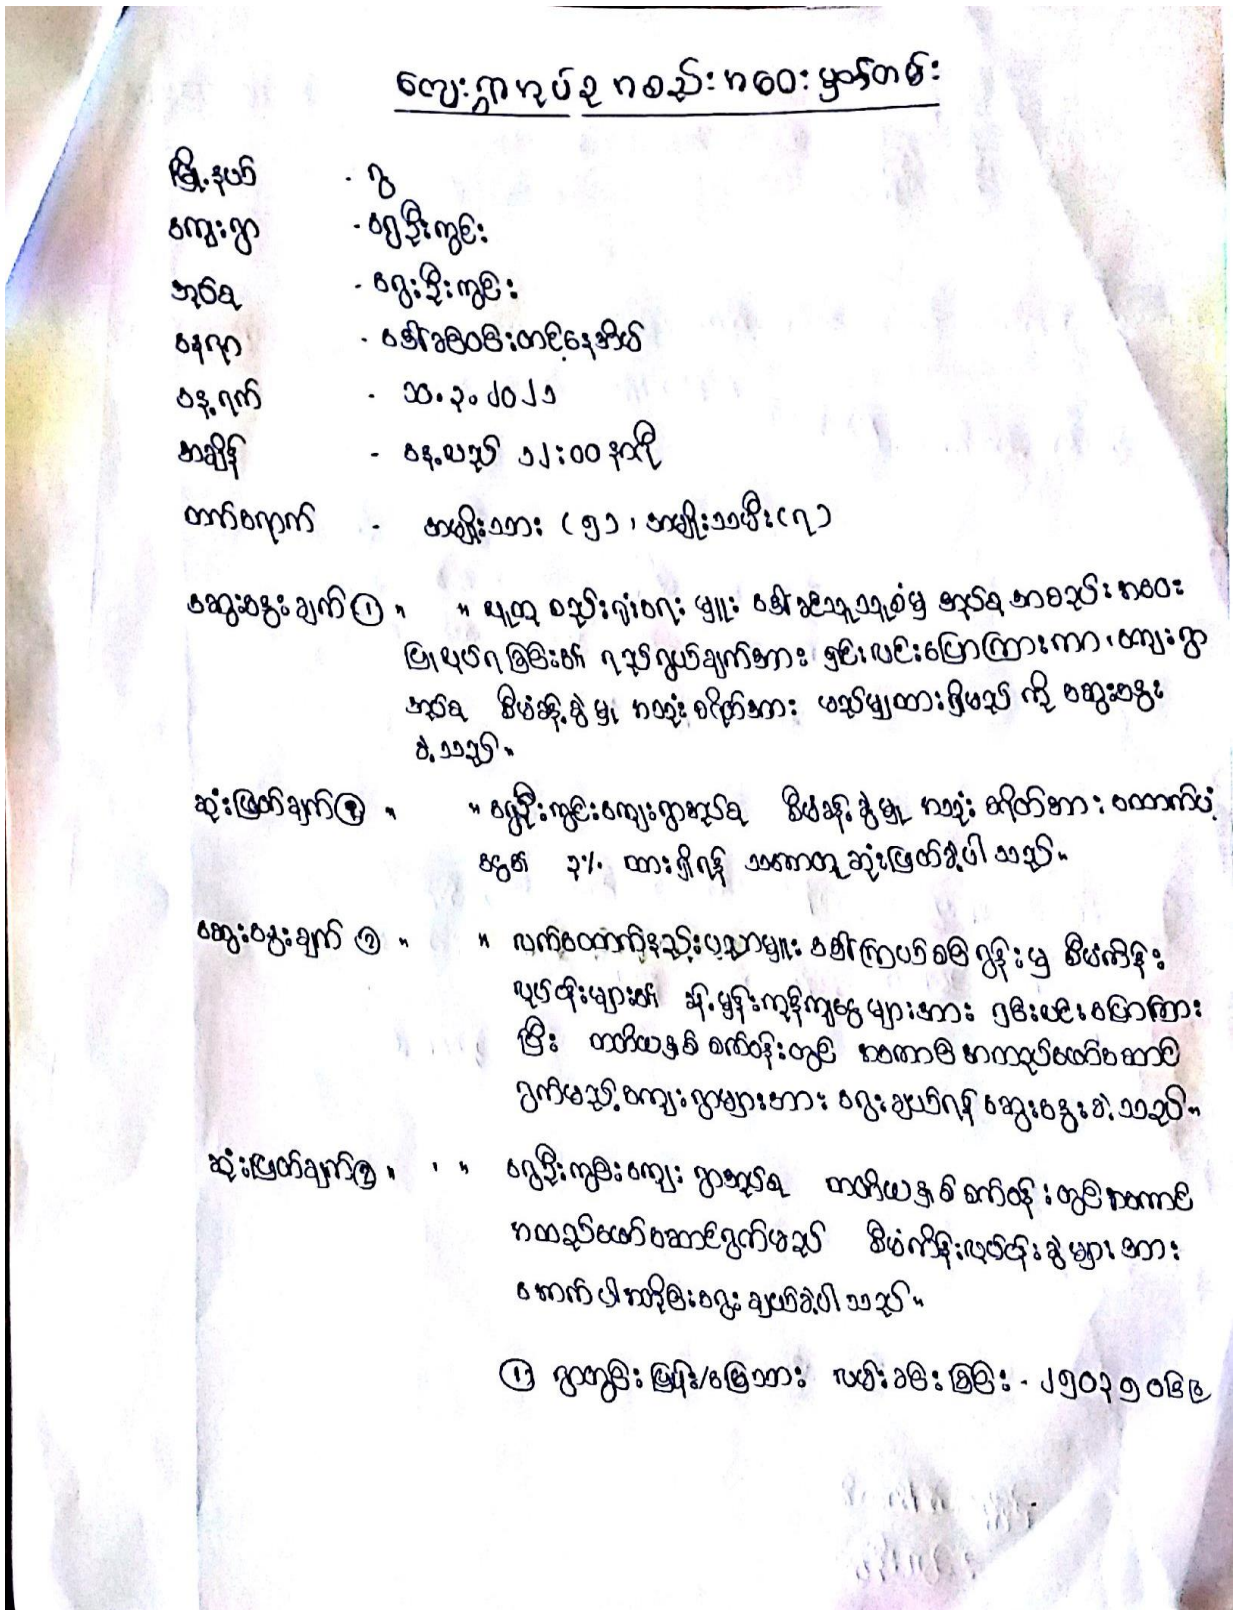 ကျေးရွာအုပ်စု အစည်းအဝေး မှတ်တမ်း
မြို့နယ် - ဂွ
ကျေးရွာ - ရွှေဦးကွင်း
အုပ်စု - ရွှေးဦးကွင်း
နေရာ - ဒေါ်ခင်ဝင်းတင့်နေအိမ်
နေ့ရက် - ၁၁.၃.၂၀၂၁
အချိန် - နေ့လည် ၁၂:၀၀ နာရီ
တက်ရောက် - အမျိုးသား (၅)၊ အမျိုးသမီး(၇)
ဆွေးနွေးချက် ① ။ ။ လူထု စည်းရုံးရေး မှူး ဒေါ်ခင်သူသူစံမှ အုပ်စု အစည်း အဝေး
ပြုလုပ်ရခြင်း၏ ရည်ရွယ်ချက်အား ရှင်းလင်းပြောကြားကာ၊ ကျေးရွာ
အုပ်စု စီမံခန့်ခွဲမှု အသုံးစရိတ်အား မည်မျှထားရှိမည် ကို ဆွေးနွေး
ခဲ့သည်။
ဆုံးဖြတ်ချက် ① ။ ။ ရွှေဦးကွင်းကျေးရွာအုပ်စု စီမံခန့်ခွဲမှု အသုံးစရိတ်အား ထောက်ပံ့
ငွေ၏ ၃% ထားရှိရန် သဘောတူဆုံးဖြတ်ခဲ့ပါသည်။
ဆွေးနွေးချက် ② ။ ။ လက်ထောက်နည်းပညာမှူး ဒေါ်ကြယ်စင်ဝွန်းမှ စီမံကိန်း
လုပ်ငန်းများ၏ ခန့်မှန်းကုန်ကျငွေများအား ရှင်းလင်းပြောကြား
ပြီး တတိယနှစ် စက်ဝန်းတွင် အကောင်အထည်ဖော်ဆောင်
ရွက်မည့် ကျေးရွာများအား ရွေးချယ်ရန် ဆွေးနွေးခဲ့သည်။
ဆုံးဖြတ်ချက် ② ။ ။ ရွှေဦးကွင်းကျေးရွာအုပ်စု တတိယနှစ် စက်ဝန်းတွင်အကောင်
အထည်ဖော်ဆောင်ရွက်မည် စီမံကိန်းလုပ်ငန်းခွဲများအား
အောက်ပါအတိုင်းရွေးချယ်ခဲ့ပါသည်။
① ရွာတွင်း မြေနီ/မြေသား လမ်းခင်းခြင်း - ၂၅၀၃၅၀ပေ